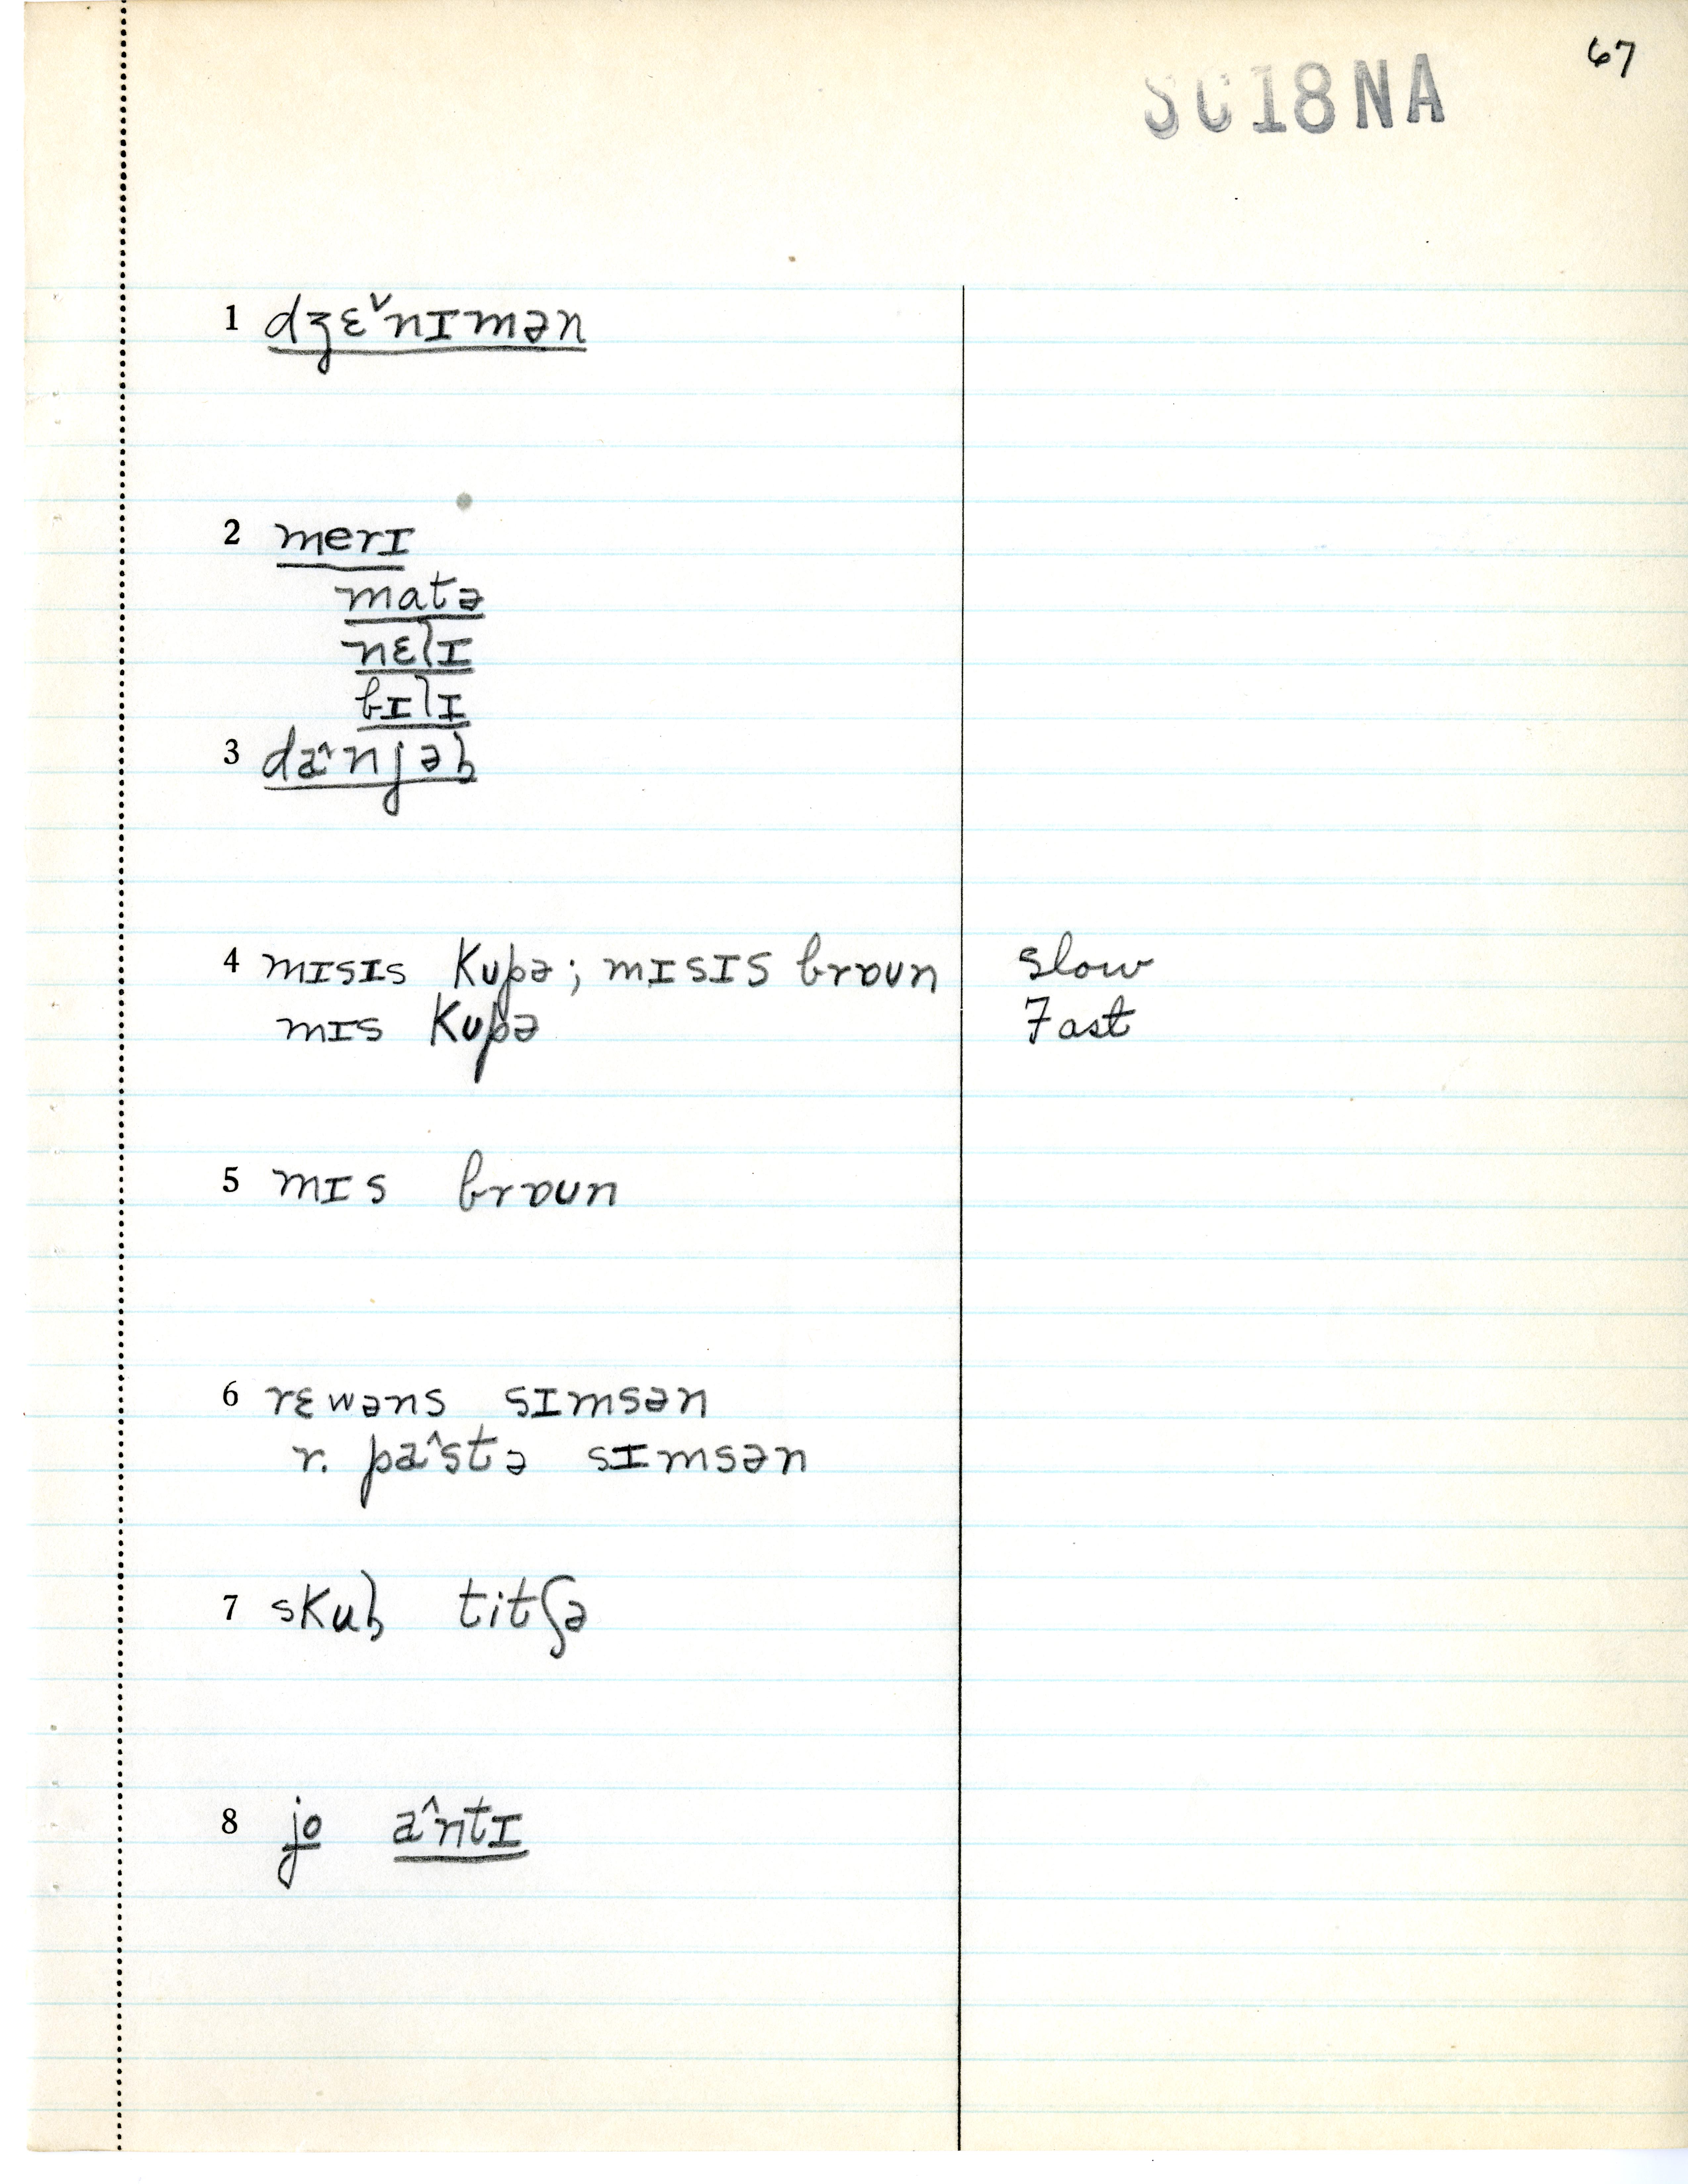 67
SC18NA
1 dʒɛˇnɪmən
2 merɪ
matə
nɛlɪ
bɪlɪ
3 da^njəɫ
4 mɪsɪs kupə; mɪsɪs braun slow
mɪs kupə Fast
5 mɪs braun
6 rɛwəns sɪmsən
r. pa^stə sɪmsən
7 skuɫ titʃə
8 jo a^ntɪ